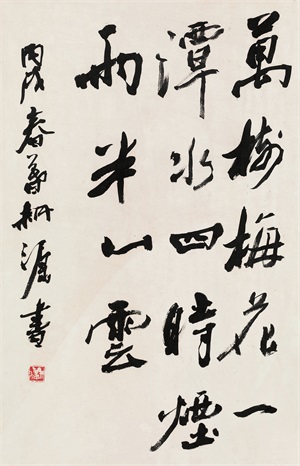 萬樹梅花一
潭水四時煙
雨半山雲
丙戌春書